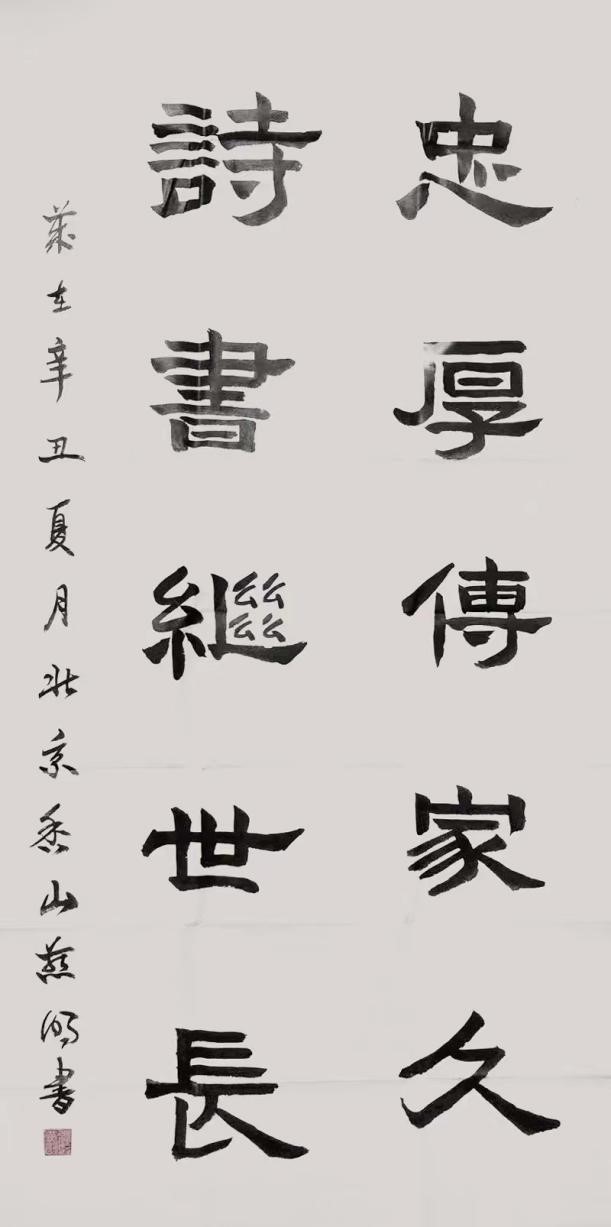 忠厚傳家久
詩書繼世長
歲在辛丑夏月北京香山燕鴻書